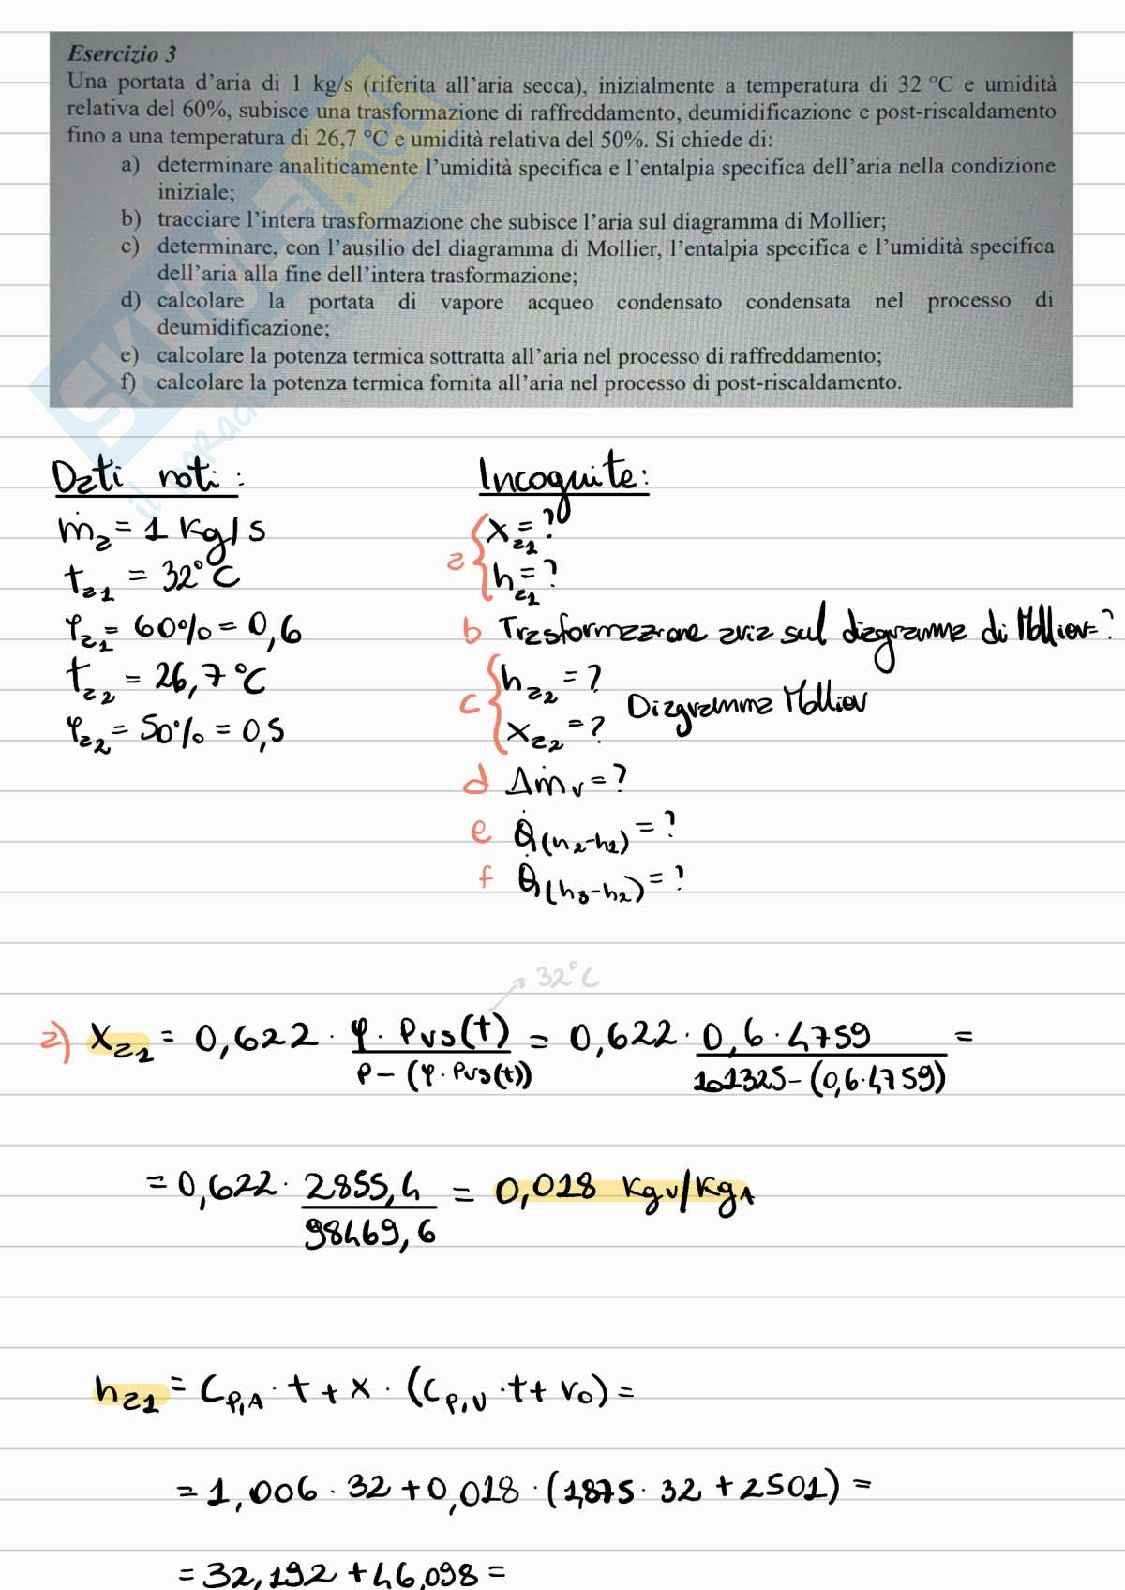 Esercizio 3
Una portata d'aria di 1 kg/s (riferita all'aria secca), inizialmente a temperatura di 32 °C e umidità
relativa del 60%, subisce una trasformazione di raffreddamento, deumidificazione e post-riscaldamento
fino a una temperatura di 26,7 °C e umidità relativa del 50%. Si chiede di:
a) determinare analiticamente l'umidità specifica e l'entalpia specifica dell'aria nella condizione
iniziale;
b) tracciare l'intera trasformazione che subisce l'aria sul diagramma di Mollier;
c) determinare, con l'ausilio del diagramma di Mollier, l'entalpia specifica e l'umidità specifica
dell'aria alla fine dell'intera trasformazione;
d) calcolare la portata di vapore acqueo condensato condensata nel processo di
deumidificazione;
e) calcolare la potenza termica sottratta all'aria nel processo di raffreddamento;
f) calcolare la potenza termica fornita all'aria nel processo di post-riscaldamento.
Dati noti:
ṁa = 1 Kg/s
ta1 = 32°C
φa1 = 60% = 0,6
ta2 = 26,7 °C
φa2 = 50% = 0,5
Incognite:
a { xa1 = ?
ha1 = ?
b Trasformazione aria sul diagramma di Mollier = ?
c { ha2 = ? Diagramma Mollier
xa2 = ?
d Δṁv = ?
e Q̇(h2-h1) = ?
f Q̇(h3-h2) = ?
32°C
a) xa1 = 0,622 · φ · Pvs(t) / P - (φ · Pvs(t)) = 0,622 · 0,6 · 4759 / 101325 - (0,6 · 4759) =
= 0,622 · 2855,4 / 98469,6 = 0,018 Kgv/KgA
ha1 = Cp,A · t + x · (Cp,v · t + r0) =
= 1,006 · 32 + 0,018 · (1,875 · 32 + 2501) =
= 32,192 + 46,098 =